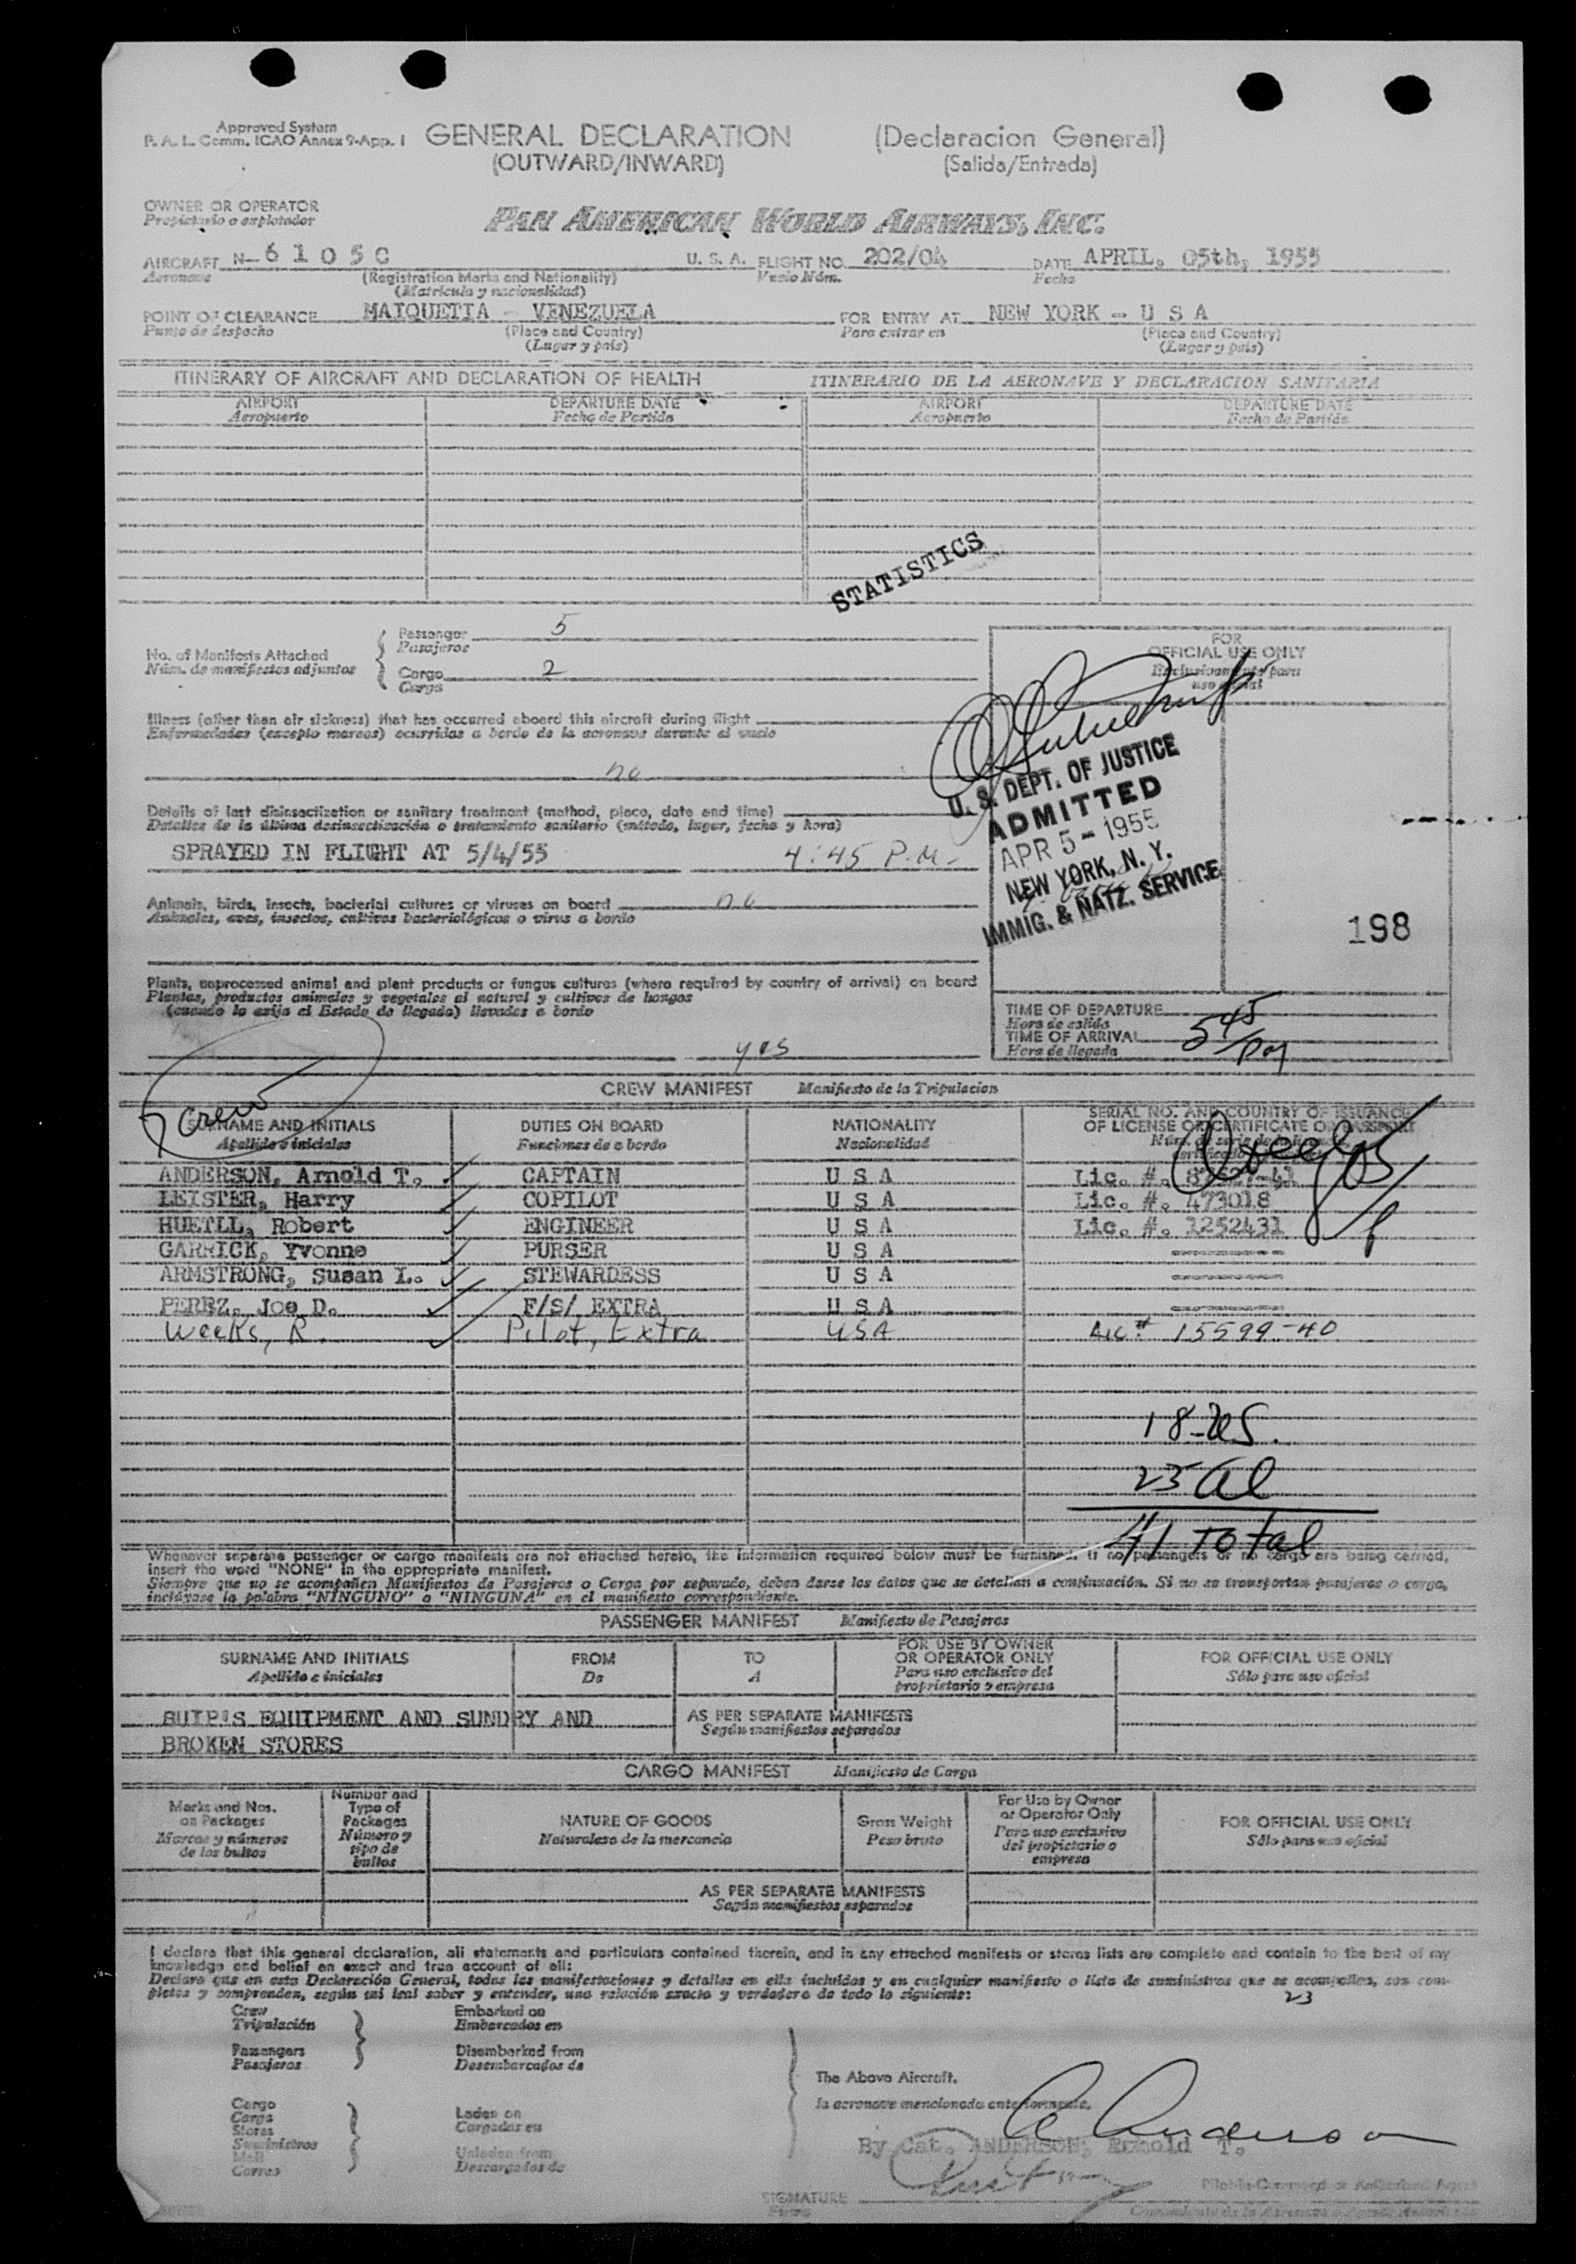 Approved System
P. A. L. Comm. ICAO Annex 9-App. 1
GENERAL DECLARATION (Declaracion General)
(OUTWARD/INWARD) (Salida/Entrada)
OWNER OR OPERATOR
Propietario o explotador
PAN AMERICAN WORLD AIRWAYS, INC.
AIRCRAFT N-6105C U. S. A. FLIGHT NO. 202/04 DATE APRIL. 05th, 1955
Aeronave (Registration Marks and Nationality) Vuelo Núm. Fecha
(Matricula y nacionalidad)
POINT OF CLEARANCE MAIQUETIA - VENEZUELA FOR ENTRY AT NEW YORK - U S A
Punto de despacho (Place and Country) Para entrar en (Place and Country)
(Lugar y país) (Lugar y país)
ITINERARY OF AIRCRAFT AND DECLARATION OF HEALTH ITINERARIO DE LA AERONAVE Y DECLARACION SANITARIA
AIRPORT DEPARTURE DATE AIRPORT DEPARTURE DATE
Aeropuerto Fecha de Partida Aeropuerto Fecha de Partida
STATISTICS
No. of Manifests Attached
Núm. de manifiestos adjuntos
Passenger 5
Pasajeros
Cargo 2
Carga
FOR
OFFICIAL USE ONLY
Exclusivamente para
uso oficial
Illness (other than air sickness) that has occurred aboard this aircraft during flight
Enfermedades (excepto mareos) ocurridas a bordo de la aeronave durante el vuelo
no
Details of last disinsectization or sanitary treatment (method, place, date and time)
Detalles de la última desinsectización o tratamiento sanitario (método, lugar, fecha y hora)
SPRAYED IN FLIGHT AT 5/4/55 4:45 P.M.
U. S. DEPT. OF JUSTICE
ADMITTED
APR 5 - 1955
NEW YORK, N. Y.
IMMIG. & NATZ. SERVICE
198
Animals, birds, insects, bacterial cultures or viruses on board no
Animales, aves, insectos, cultivos bacteriológicos o virus a bordo
Plants, unprocessed animal and plant products or fungus cultures (where required by country of arrival) on board
Plantas, productos animales y vegetales al natural y cultivos de hongos
(cuando lo exija el Estado de llegada) llevados a bordo
yes
TIME OF DEPARTURE
Hora de salida
TIME OF ARRIVAL 5 45 PM
Hora de llegada
CREW MANIFEST Manifiesto de la Tripulacion
7 crew
SURNAME AND INITIALS DUTIES ON BOARD NATIONALITY SERIAL NO. AND COUNTRY OF ISSUANCE
OF LICENSE OR CERTIFICATE OR PASSPORT
Apellido e iniciales Funciones de a bordo Nacionalidad
ANDERSON, Arnold T. CAPTAIN U S A Lic. #.
LEISTER, Harry COPILOT U S A Lic. #. 473018
HUETLL, Robert ENGINEER U S A Lic. #. 1252431
GARRICK, Yvonne PURSER U S A
ARMSTRONG, Susan L. STEWARDESS U S A
PEREZ, Joe D. F/S/ EXTRA U S A
Weeks, R. Pilot, Extra USA Lic # 15599-40
18-US.
23 al
41 total
Whenever separate passenger or cargo manifests are not attached hereto, the information required below must be furnished. If no passengers or no cargo are being carried,
insert the word "NONE" in the appropriate manifest.
Siempre que no se acompañen Manifiestos de Pasajeros o Carga por separado, deben darse los datos que se detallan a continuación. Si no se transportan pasajeros o carga,
inclúyase la palabra "NINGUNO" o "NINGUNA" en el manifiesto correspondiente.
PASSENGER MANIFEST Manifiesto de Pasajeros
SURNAME AND INITIALS FROM TO FOR USE BY OWNER
OR OPERATOR ONLY FOR OFFICIAL USE ONLY
Apellido e iniciales De A Para uso exclusivo del
propietario o empresa Sólo para uso oficial
SUIP'S EQUIPMENT AND SUNDRY AND AS PER SEPARATE MANIFESTS
Según manifiestos separados
BROKEN STORES
CARGO MANIFEST Manifiesto de Carga
Marks and Nos.
on Packages
Marcas y números
de los bultos
Number and
Type of
Packages
Número y
tipo de
bultos
NATURE OF GOODS
Naturaleza de la mercancía
Gross Weight
Peso bruto
For Use by Owner
or Operator Only
Para uso exclusivo
del propietario o
empresa
FOR OFFICIAL USE ONLY
Sólo para uso oficial
AS PER SEPARATE MANIFESTS
Según manifiestos separados
I declare that this general declaration, all statements and particulars contained therein, and in any attached manifests or stores lists are complete and contain to the best of my
knowledge and belief an exact and true account of all:
Declaro que en esta Declaración General, todas las manifestaciones y detalles en ella incluidos y en cualquier manifiesto o lista de suministros que se acompañen, son com-
pletos y comprenden, según mi leal saber y entender, una relación exacta y verdadera de todo lo siguiente:
23
Crew
Tripulación
Passengers
Pasajeros
Embarked on
Embarcados en
Disembarked from
Desembarcados de
Cargo
Carga
Stores
Suministros
Mail
Correo
Laden on
Cargados en
Unladen from
Descargados de
The Above Aircraft.
la aeronave mencionada anteriormente.
A Anderson
By Cat. ANDERSON, Arnold T.
SIGNATURE
Firma